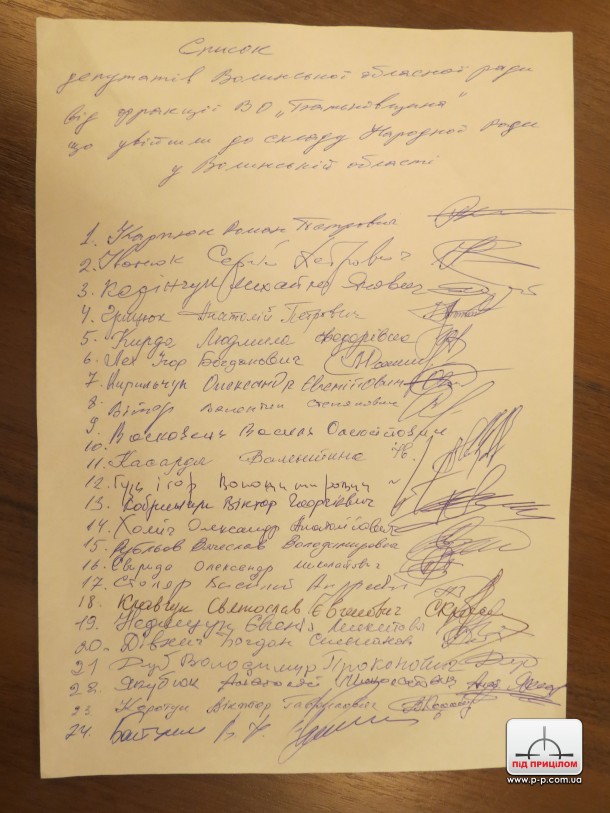 Список
депутатів Волинської обласної ради
від фракції ВО „Батьківщина"
що увійшли до складу Народної ради
у Волинській області
1. Карпюк Роман Петрович
2. Іванюк Сергій Петрович
3. Михайло Якович
4. Грицюк Анатолій Петрович
5. Кирда Людмила Федорівна
6. Лех Ігор Богданович
7. Кирильчук Олександр
8. Вітер Валентин Степанович
9.
10. Василь
11. Валентина
12. Гузь Ігор Володимирович
13. Віктор Георгієвич
14. Холич Олександр Анатолійович
15. Рубльов Вячеслав Володимирович
16. Свирида Олександр Михайлович
17. Столяр Василій Андрійович
18. Кравчук Святослав Євгенович
19. Недищук Євгенія Микитовна
20. Дівкий Богдан
21 Дуб Володимир Прокопович
22. Якубюк Анатолій
23. Коротун Віктор Гаврилович
24.
ПІД ПРИЦІЛОМ
www.p-p.com.ua